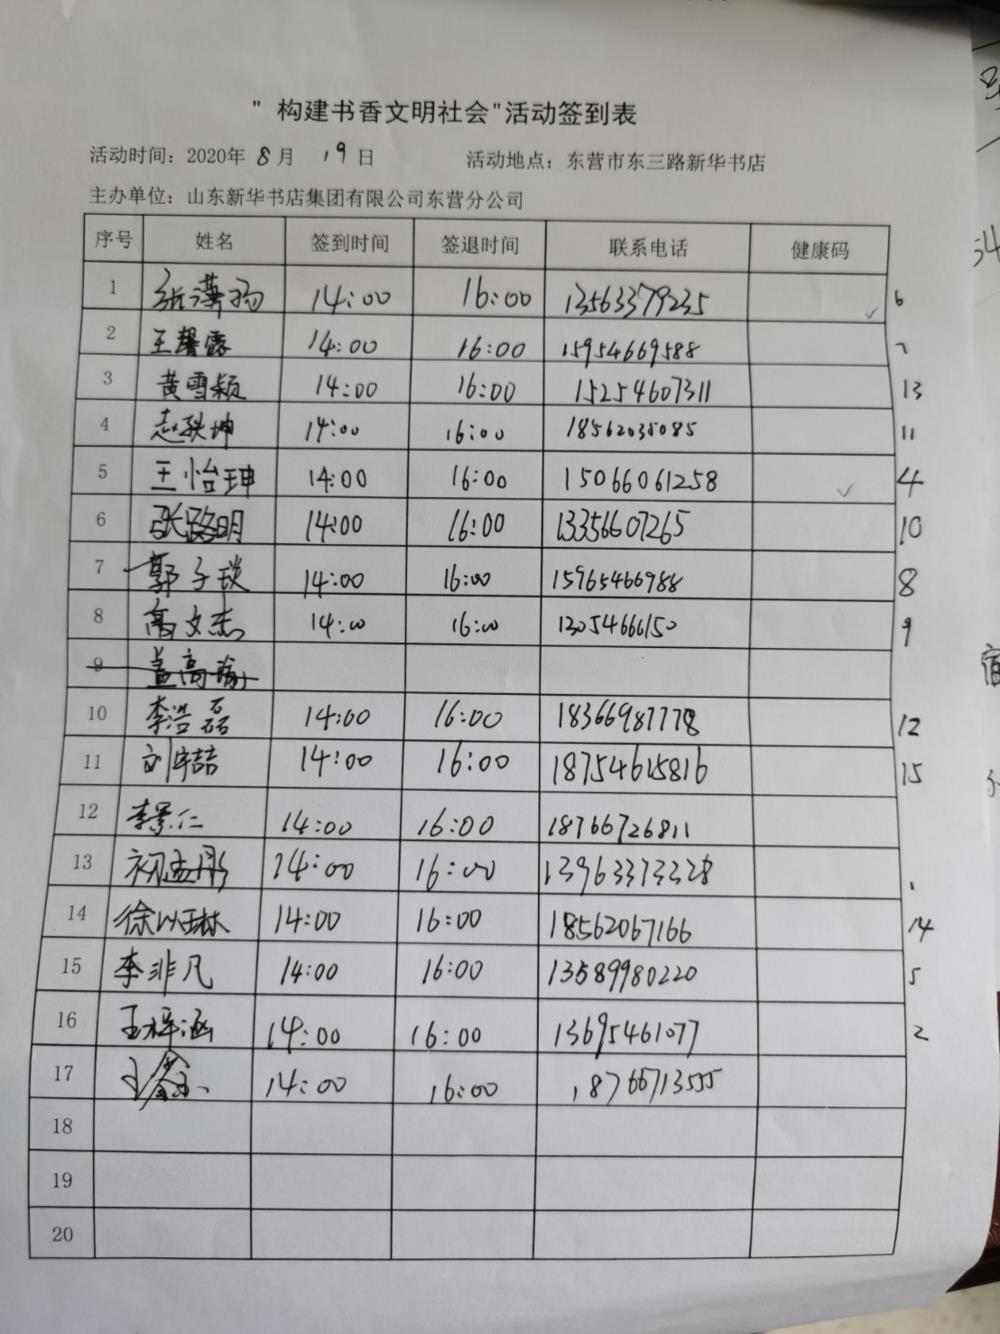 " 构建书香文明社会"活动签到表
活动时间：2020年 8月 19日 活动地点：东营市东三路新华书店
主办单位：山东新华书店集团有限公司东营分公司
序号 姓名 签到时间 签退时间 联系电话 健康码
1 14:00 16:00 13563379235 ✓ 6
2 王馨露 14:00 16:00 15954669588
3 黄雪颖 14:00 16:00 15254607311 13
4 14:00 16:00 18562035085 11
5 王怡珅 14:00 16:00 15066061258 ✓ 4
6 张路明 14:00 16:00 13356607265 10
7 郭子琰 14:00 16:00 15965466988 8
8 高文杰 14:00 16:00 13054666150 9
9 盖高
10 李浩磊 14:00 16:00 18366987778 12
11 刘宇喆 14:00 16:00 18754615816 15
12 李景仁 14:00 16:00 18766726811
13 初孟彤 14:00 16:00 13963373328
14 徐以琳 14:00 16:00 18562067166 14
15 李非凡 14:00 16:00 13589980220 5
16 王梓涵 14:00 16:00 13695461077 2
17 王鑫 14:00 16:00 18766713555
18
19
20